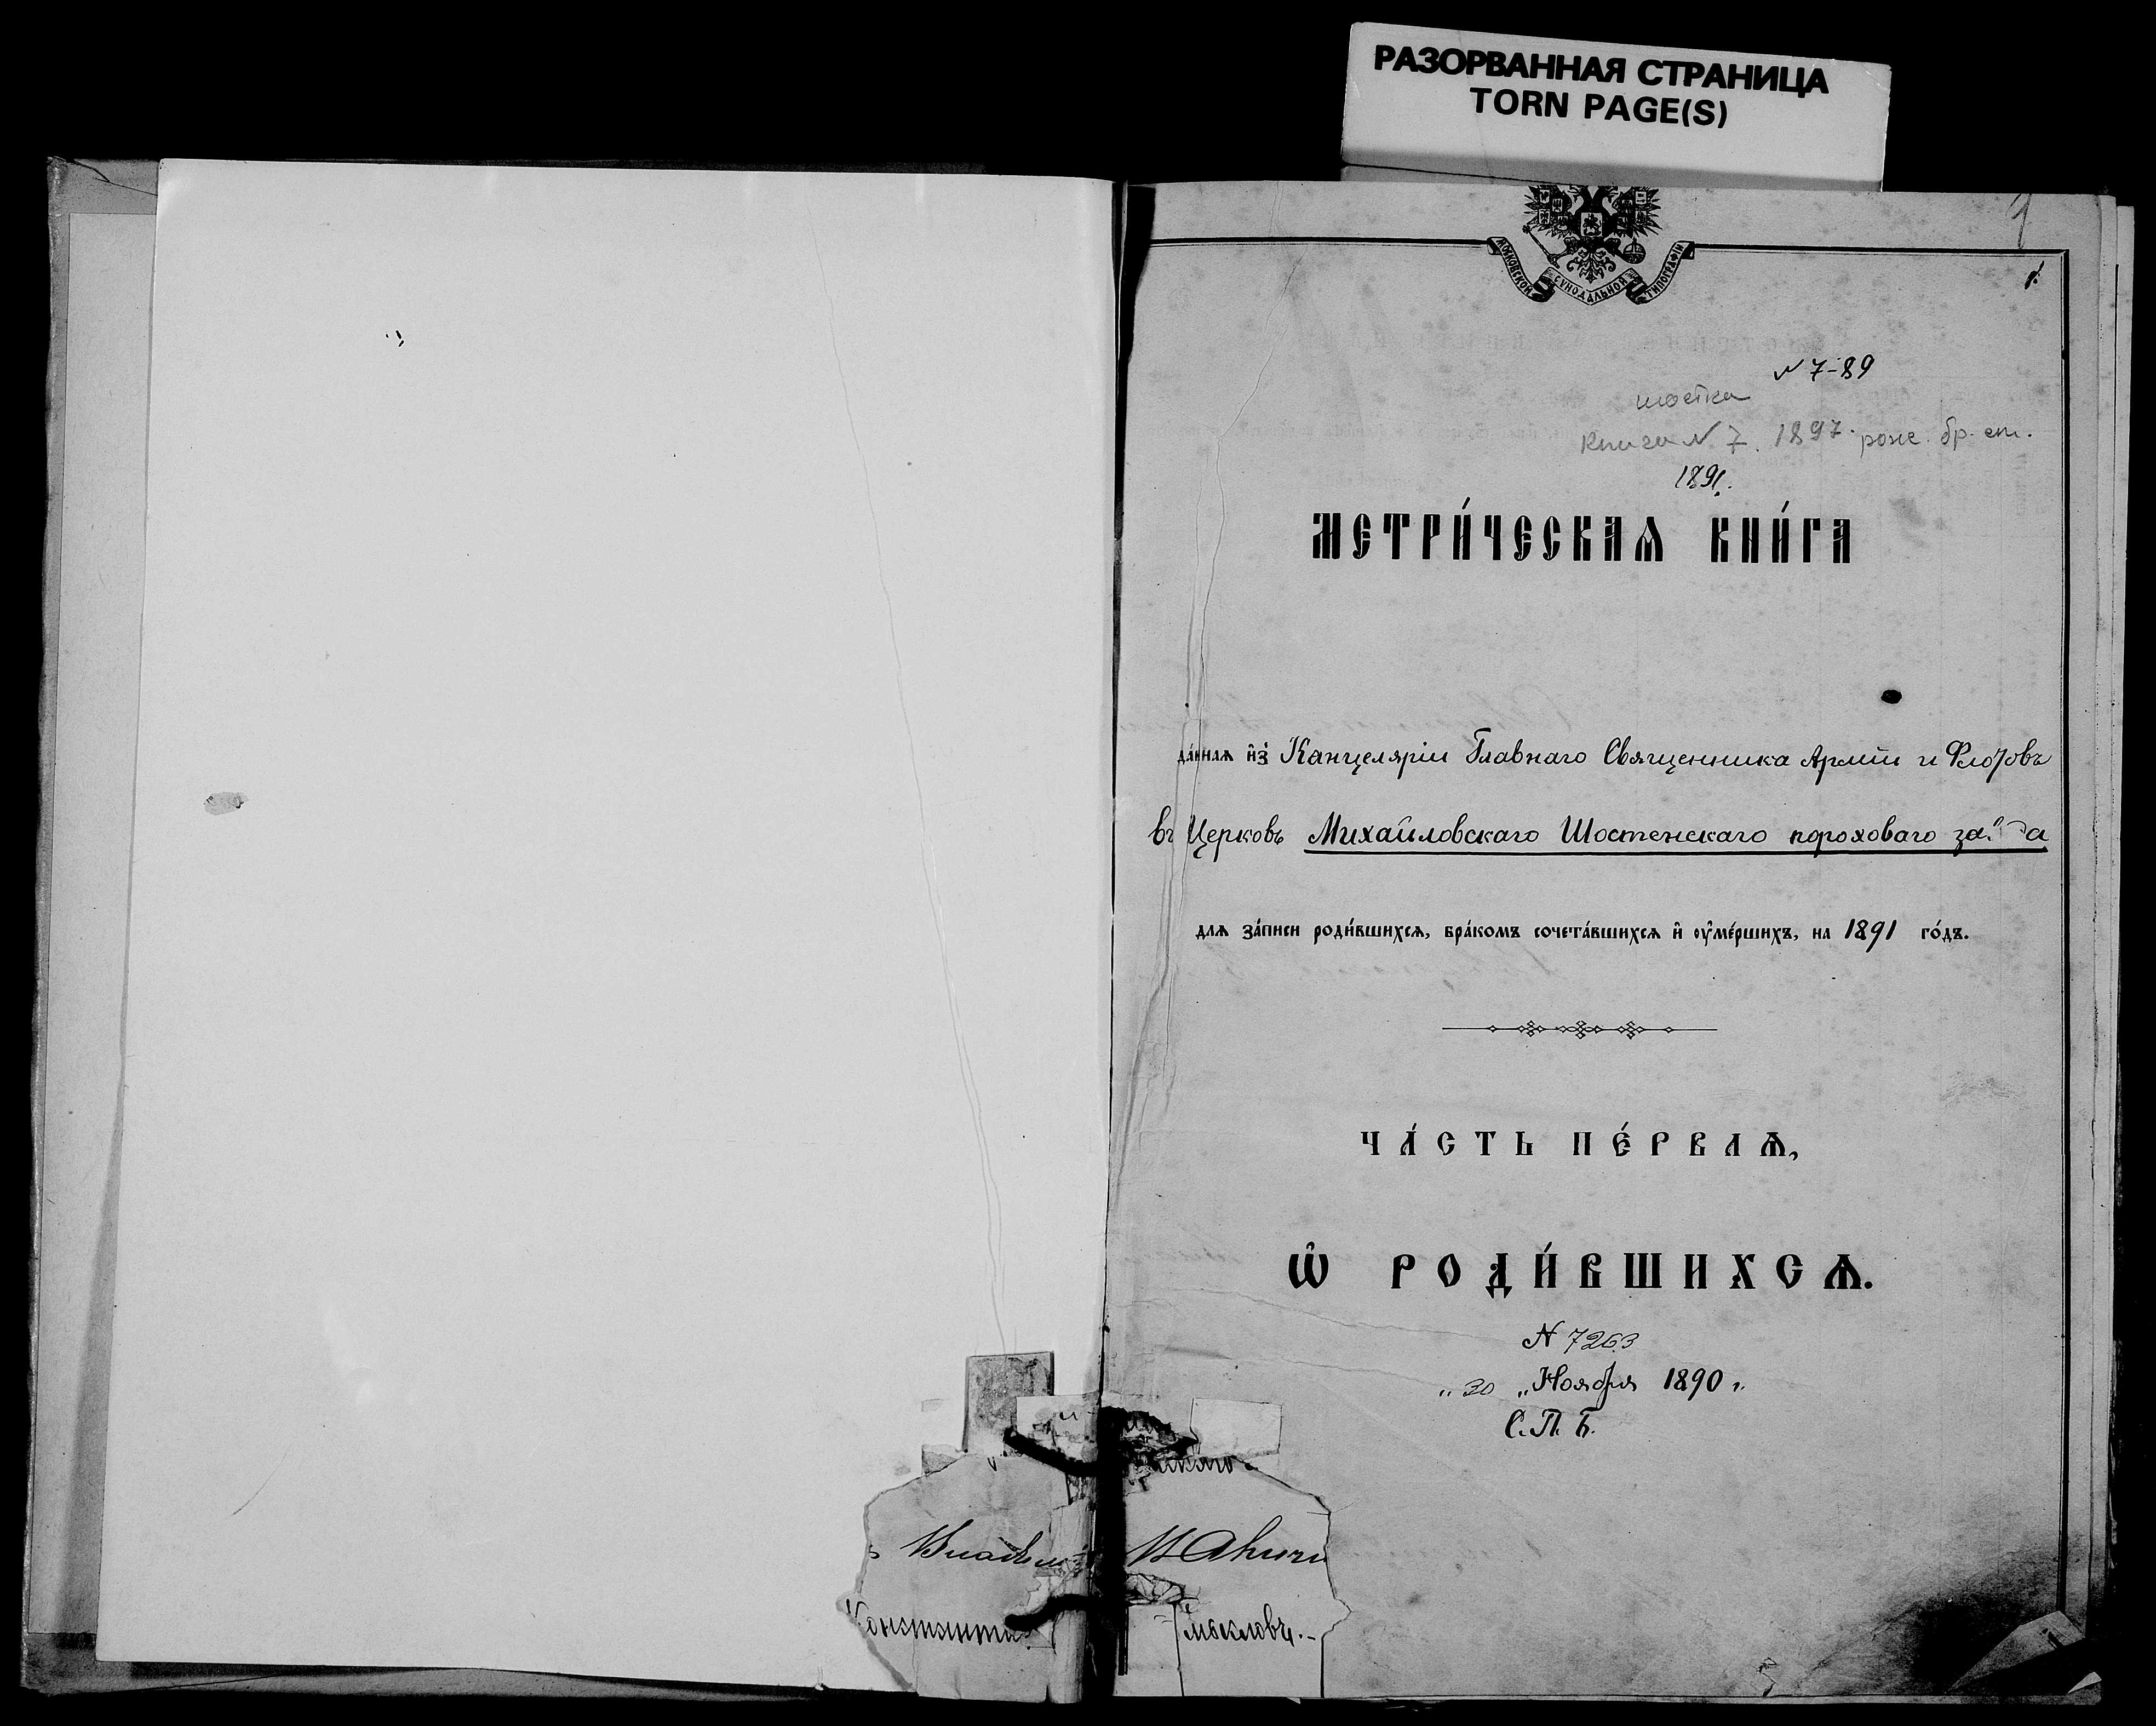 РАЗОРВАННАЯ СТРАНИЦА
TORN PAGE(S)
МОСКОВСКОЙ СѴНОДАЛЬНОЙ ТИПОГРАФІИ
1.
N 7-89
шостка
Книга N 7. 1897. рож. бр. ст.
1891.
МЕТРИ́ЧЕСКАѦ КНИ́ГА
да́ннаѧ и҆з̾ Канцеляріи Главнаго Священника Арміи и Флотовъ
въ Церковь Михайловскаго Шостенскаго пороховаго
длѧ за́писи роди́вшихсѧ, бра́комъ сочета́вшихсѧ и҆ ѹ҆ме́ршихъ, на 1891 го́дъ.
ЧА́СТЬ ПЕ́РВАѦ,
Ѡ҆ РОДИ́ВШИХСѦ.
N 7263
„ 30 „ Ноября 1890 г.
С. П. Б.
Владим
Константи